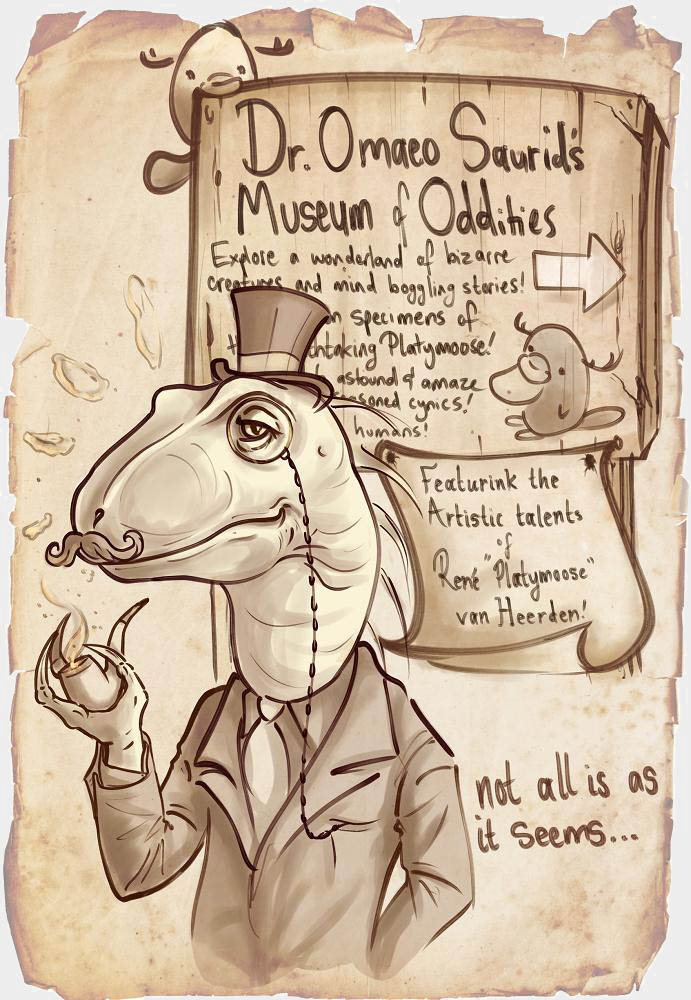 Dr. Omaeo Saurid's
Museum of Oddities
Explore a wonderland of bizarre
creatures and mind boggling stories!
specimens of
Platymoose!
astound & amaze
cynics!
humans!
Featurink the
Artistic talents
of
René "Platymoose"
van Heerden!
not all is as
it seems...